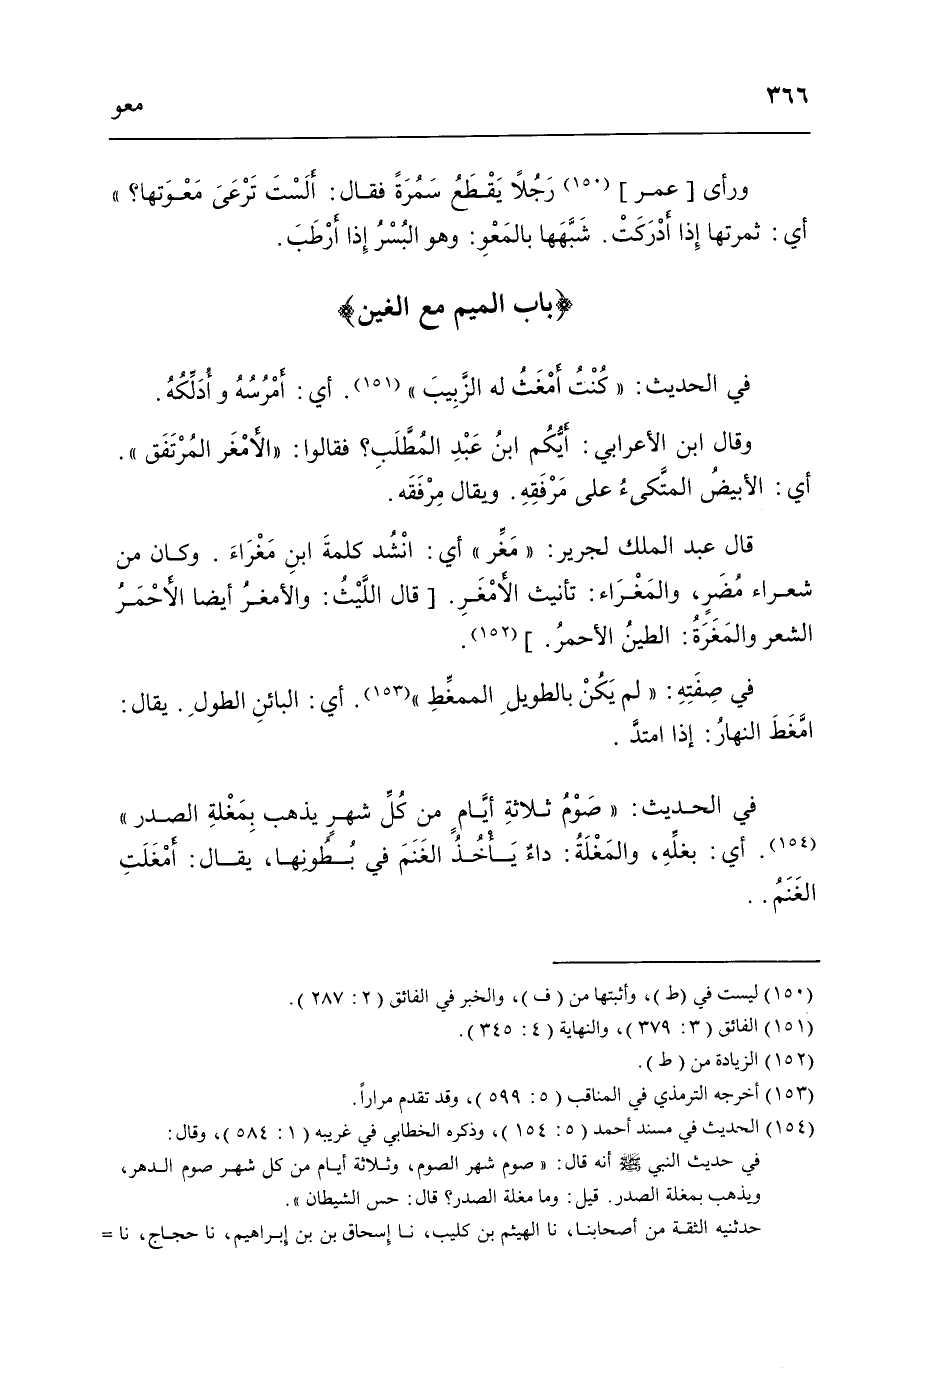 ٣٦٦
معو
ورأى [ عمـر ] (١٥٠) رَجُلاً يَقْـطَعُ سَمُرَةً فقـال: أَلَسْتَ تَرْعَىَ مَعْـوَتها؟ »
أي: ثمرتها إِذا أَدْرَكَتْ. شَبَّهَها بالمَعْوِ: وهو البُسْرُ إِذا أَرْطَبَ.
﴿باب الميم مع الغين﴾
في الحديث: « كُنْتُ أَمْغَثُ له الزَّبِيبَ » (١٥١). أي: أَمْرُسُهُ و أُدَلِّكُهُ.
وقال ابن الأعرابي: أَيُّكُم ابنُ عَبْدِ المُطَّلَبِ؟ فقالوا: «الأَمْغَر المُرْتَفَق ».
أي: الأبيضُ المتَّكىءُ على مَرْفَقِهِ. ويقال مِرْفَقَه.
قال عبد الملك لجرير: « مَغِّر » أي: انْشُد كلمةَ ابنِ مَغْرَاءَ . وكـان من
شعـراء مُضَرٍ، والمَغْـرَاء: تأنيث الأَمْغَـرِ. [ قال اللَّيْثُ: والأمغـرُ أيضا الأَحْمَـرُ
الشعر والمَغَرَةُ: الطينُ الأحمرُ. ] (١٥٢).
في صِفَتِهِ: « لم يَكُنْ بالطويلِ الممغِّطِ »(١٥٣). أي: البائنِ الطولِ. يقال:
امَّغَطَ النهارُ: إذا امتدَّ .
في الحديث: « صَوْمُ ثـلاثةِ أيَّـامٍ من كُلِّ شهـرٍ يذهب بِمَغْلةِ الصـدر »
(١٥٤). أي: بغلِّهِ، والمَغْلَةُ: داءٌ يَـأْخُـذُ الغَنَمَ في بُـطُونِهـا، يقـال: أَمْغَلَتِ
الغَنَمُ. .
(١٥٠) ليست في (ط )، وأثبتها من ( ف )، والخبر في الفائق ( ٢ : ٢٨٧ ).
(١٥١) الفائق ( ٣ : ٣٧٩ )، والنهاية ( ٤ : ٣٤٥ ).
(١٥٢) الزيادة من ( ط ).
(١٥٣) أخرجه الترمذي في المناقب ( ٥ : ٥٩٩ )، وقد تقدم مراراً.
(١٥٤) الحديث في مسند أحمد ( ٥ : ١٥٤ )، وذكره الخطابي في غريبه ( ١ : ٥٨٤ )، وقال:
في حديث النبي ﷺ أنه قال: « صوم شهر الصوم، وثـلاثة أيـام من كل شهـر صوم الـدهر،
ويذهب بمغلة الصدر. قيل: وما مغلة الصدر؟ قال: حس الشيطان ».
حدثنيه الثقـة من أصحابنـا، نا الهيثم بن كليب، نـا إسحاق بن بن إبـراهيم، نا حجـاج، نا =